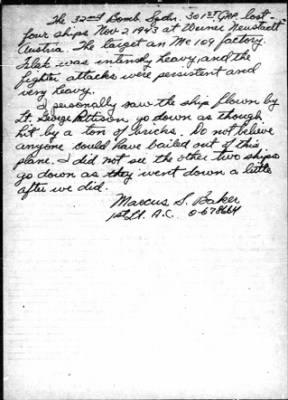 The 32nd Bomb Sqdn. 301st GRP. lost
four ships Nov. 2 1943 at Weiner Neustadt
Austria. The target an Me 109 factory.
Flak was intensly heavy, and the
fighter attacks were persistent and
very heavy.
I personally saw the ship flown by
Lt. George Pattison go down as though
hit by a ton of bricks. Do not believe
anyone could have bailed out of this
plane. I did not see the other two ships
go down as they went down a little
after we did.
Marcus S. Baker
1st Lt. A.C. 0-678664